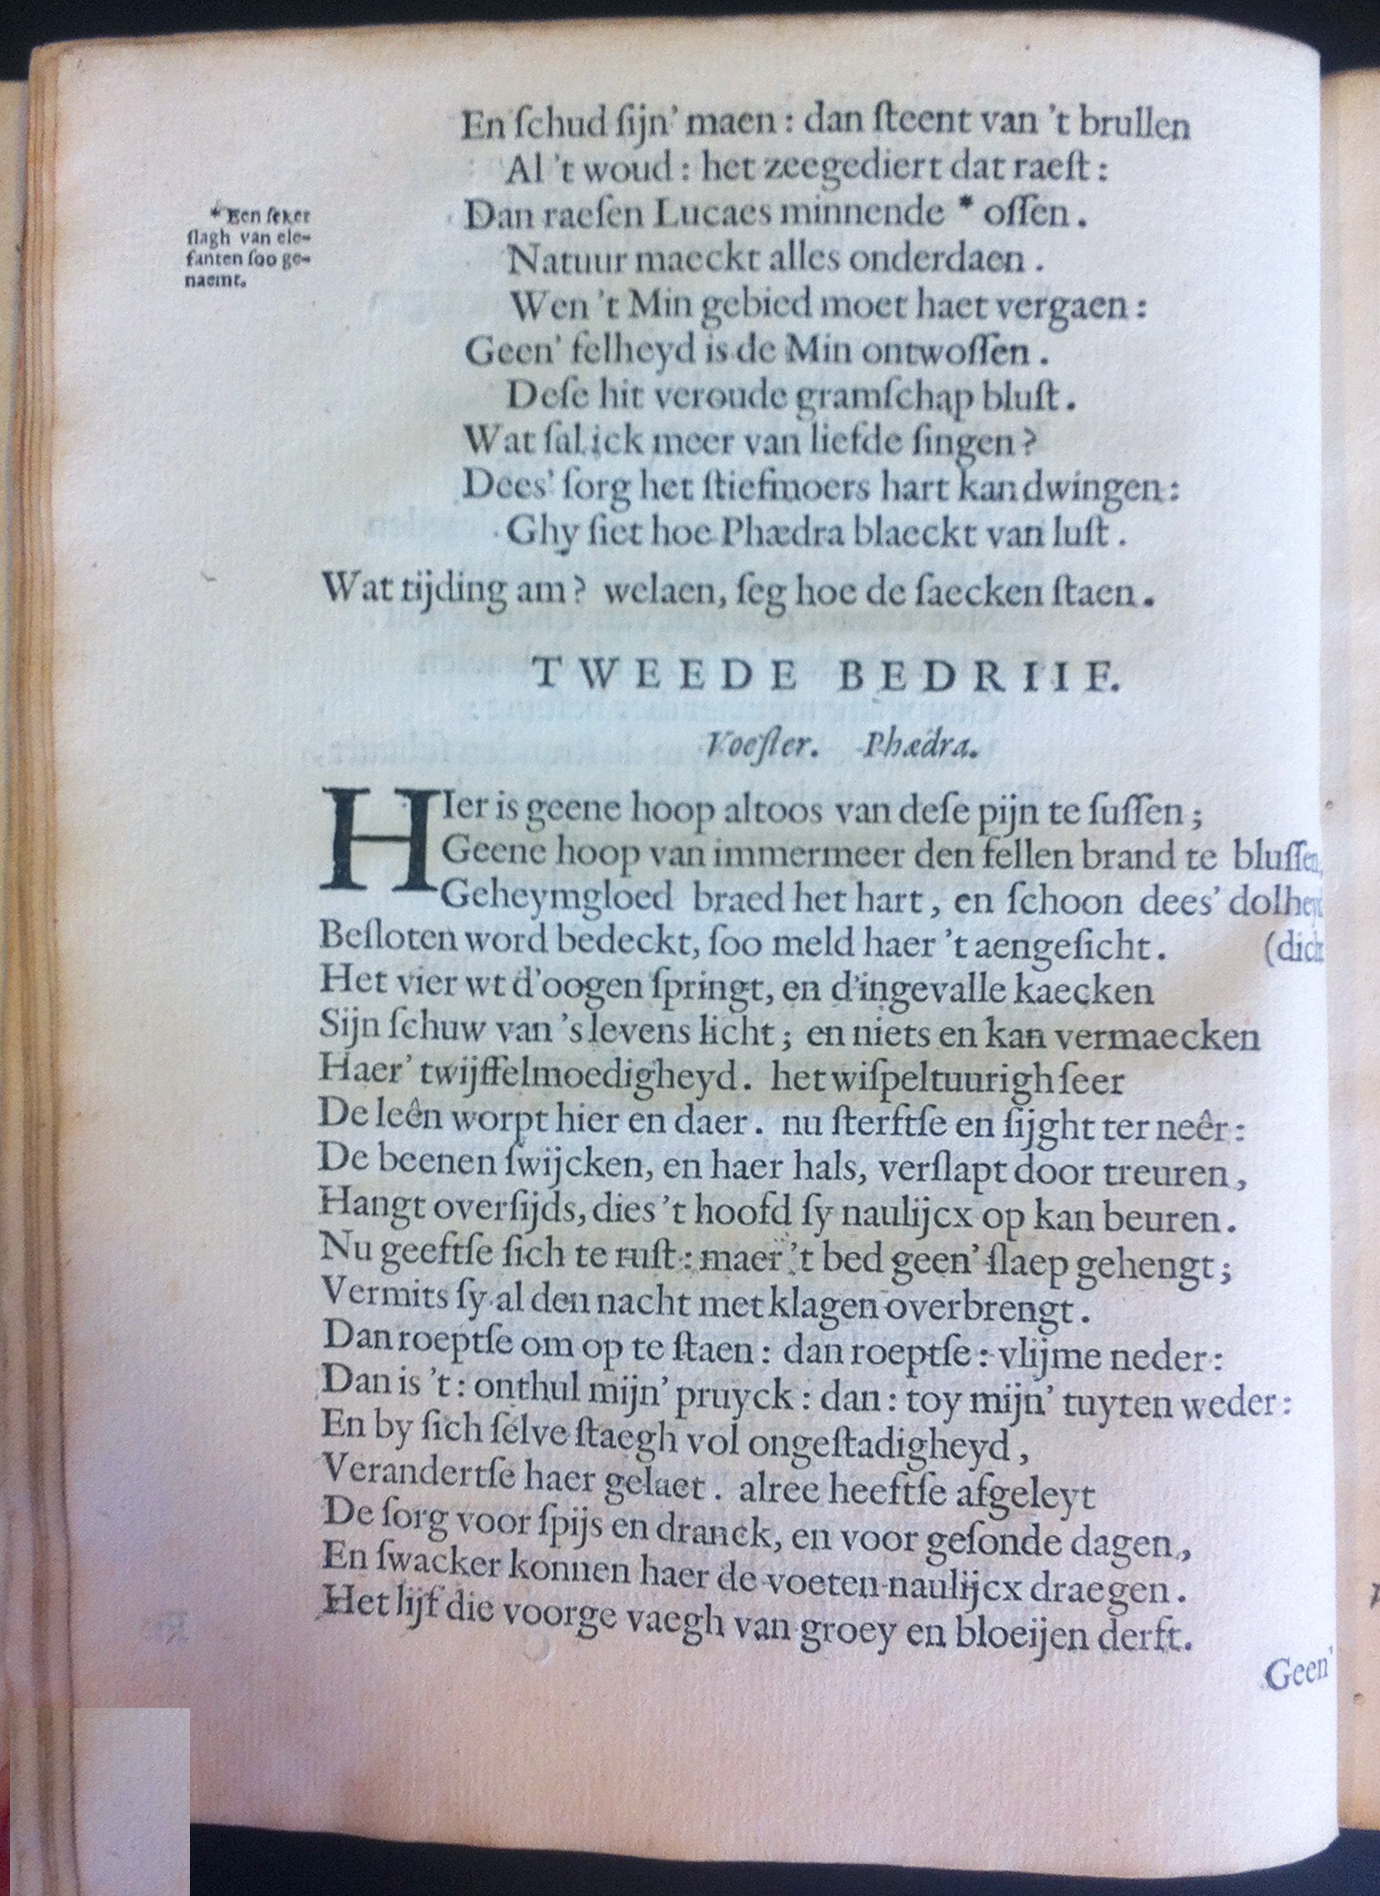 En ſchud ſijn' maen: dan ſteent van 't brullen
Al 't woud: het zeegediert dat raeſt:
Dan raeſen Lucaes minnende * oſſen.
* Een ſeker
ſlagh van ele-
fanten ſoo ge-
naemt.
Natuur maeckt alles onderdaen.
Wen 't Min gebied moet haet vergaen:
Geen' felheyd is de Min ontwoſſen.
Deſe hit veroude gramſchap bluſt.
Wat ſal ick meer van liefde ſingen?
Dees' ſorg het ſtiefmoers hart kan dwingen:
Ghy ſiet hoe Phædra blaeckt van luſt.
Wat tijding am? welaen, ſeg hoe de ſaecken ſtaen.
TWEEDE BEDRIIF.
Voeſter. Phædra.
HIer is geene hoop altoos van deſe pijn te ſuſſen;
Geene hoop van immermeer den fellen brand te bluſſen,
Geheymgloed braed het hart, en ſchoon dees' dolheyd
Beſloten word bedeckt, ſoo meld haer 't aengeſicht. (dicht
Het vier wt d'oogen ſpringt, en d'ingevalle kaecken
Sijn ſchuw van 's levens licht; en niets en kan vermaecken
Haer' twijffelmoedigheyd. het wiſpeltuurigh ſeer
De leên worpt hier en daer. nu ſterftſe en ſijght ter neêr:
De beenen ſwijcken, en haer hals, verſlapt door treuren,
Hangt overſijds, dies 't hoofd ſy naulijcx op kan beuren.
Nu geeftſe ſich te ruſt: maer 't bed geen' ſlaep gehengt;
Vermits ſy al den nacht met klagen overbrengt.
Dan roeptſe om op te ſtaen: dan roeptſe: vlijme neder:
Dan is 't: onthul mijn' pruyck: dan: toy mijn' tuyten weder:
En by ſich ſelve ſtaegh vol ongeſtadigheyd,
Verandertſe haer gelaet. alree heeftſe afgeleyt
De ſorg voor ſpijs en dranck, en voor geſonde dagen,
En ſwacker konnen haer de voeten naulijcx draegen.
Het lijf die voorge vaegh van groey en bloeijen derft.
Geen'